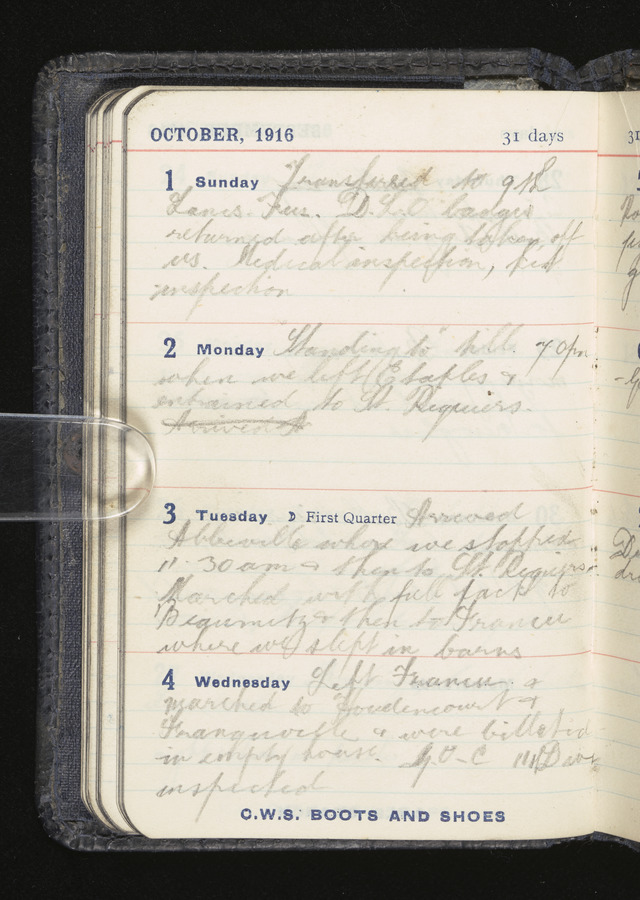 OCTOBER, 1916 31 days 31
1 Sunday Transferred to 9th
Lancs. Fus. D.L.O badges
returned after being taken off
us. Medical inspection, kit
inspection
2 Monday "Standing to" till 7 0pm
when we left Etaples &
entrained to St. Requiers.
Arrived A
3 Tuesday First Quarter Arrived
Abbeville where we stopped
11.30am & then to St. Requiers.
Marched with full pack to
& then to Francu
where we slept in barns
4 Wednesday Left Francu &
marched to Houdencourt &
Franqueville & were billeted
in empty house. G.O-C 11th Divn
inspected
C.W.S. BOOTS AND SHOES